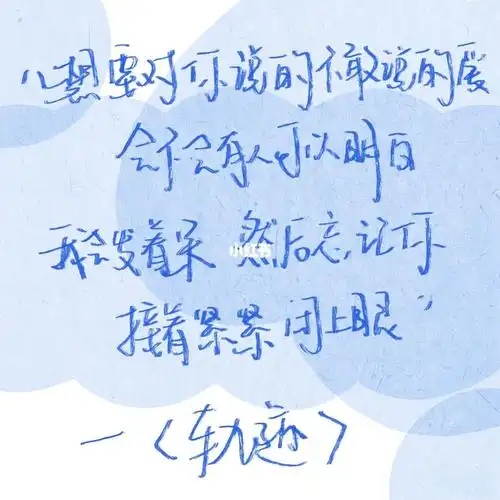 “想要对你说的不敢说的爱
会不会有人可以明白
我会发着呆 然后忘记你
接着紧紧闭上眼”
小红书
—《轨迹》